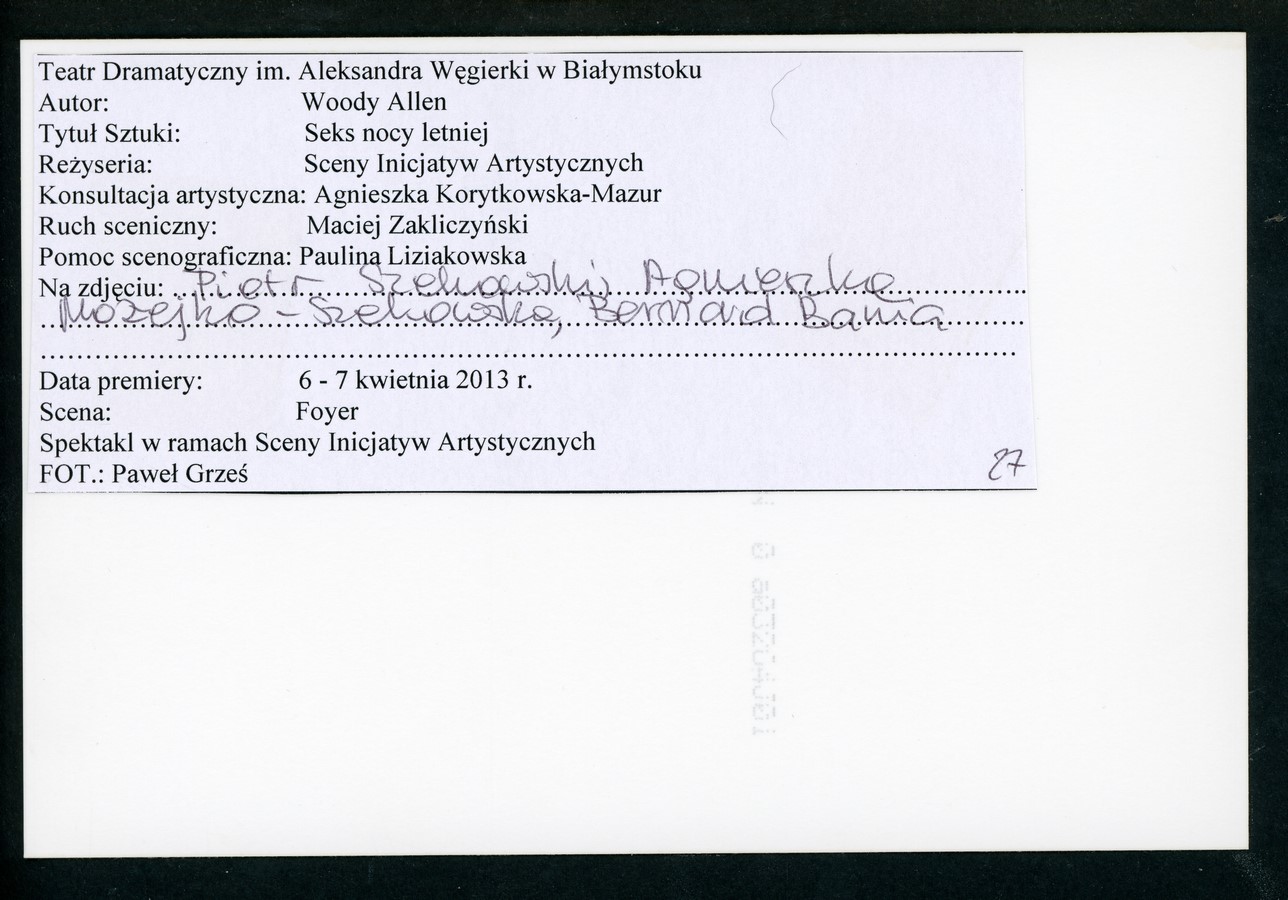 Teatr Dramatyczny im. Aleksandra Węgierki w Białymstoku
Autor: Woody Allen
Tytuł Sztuki: Seks nocy letniej
Reżyseria: Sceny Inicjatyw Artystycznych
Konsultacja artystyczna: Agnieszka Korytkowska-Mazur
Ruch sceniczny: Maciej Zakliczyński
Pomoc scenograficzna: Paulina Liziakowska
Na zdjęciu: Piotr Szekowski, Agnieszka
Możejko-Szekowska, Bernard Bania
Data premiery: 6 - 7 kwietnia 2013 r.
Scena: Foyer
Spektakl w ramach Sceny Inicjatyw Artystycznych
FOT.: Paweł Grześ
27